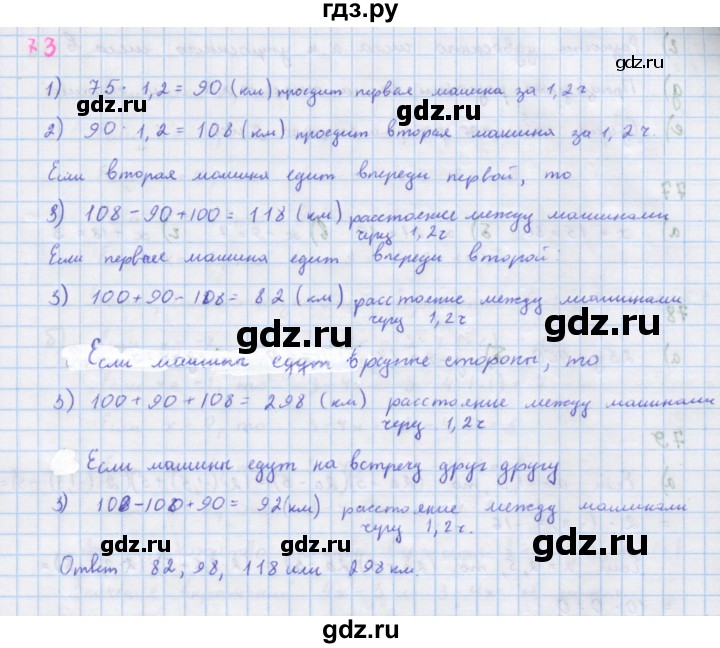 гдз.ру
73
gdz.ru
1) 75 · 1,2 = 90 (км) проедит первая машина за 1,2 ч
gdz.ru
2) 90 · 1,2 = 108 (км) проедит вторая машина за 1,2 ч.
Если вторая машина едит впереди первой, то
3) 108 - 90 + 100 = 118 (км) расстоение между машинами
через 1,2 ч
gdz.ru
Если первые машина едит впереди второй:
3) 100 + 90 - 108 = 82 (км) расстоение между машинами
через 1,2 ч
gdz.ru gdz.ru
Если машины едут в разные стороны, то
3) 100 + 90 + 108 = 298 (км) расстояние между машинами
через 1,2 ч
gdz.ru
Если машины едут на встречу друг другу
3) 108 - 100 + 90 = 92 (км) расстоение между машинами
через 1,2 ч.
gdz.ru gdz.ru
Ответ 82, 98, 118 или 298 км.
gdz.ru